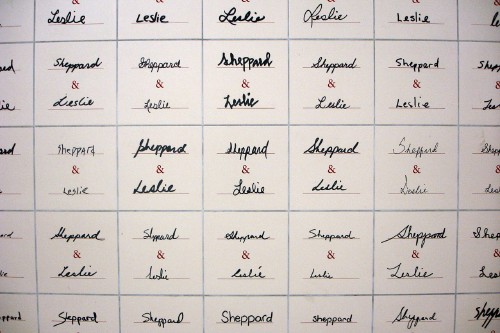 & & & & &
Leslie Leslie Leslie Leslie Leslie
Sheppard Sheppard Sheppard Sheppard Sheppard
& & & & &
Leslie Leslie Leslie Leslie Leslie
Sheppard Sheppard Sheppard Sheppard Sheppard
& & & & &
Leslie Leslie Leslie Leslie Leslie
Sheppard Sheppard Sheppard Sheppard Sheppard
& & & & &
Leslie Leslie Leslie Leslie Leslie
Sheppard Sheppard Sheppard Sheppard Sheppard